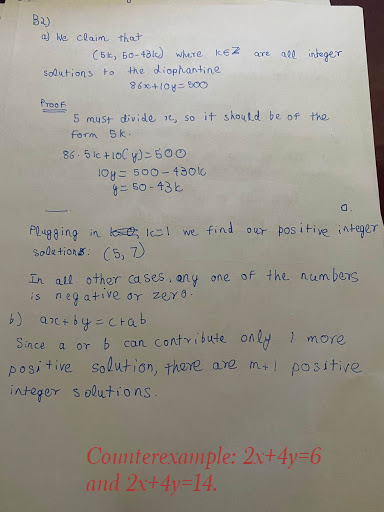 B2)
a) We claim that
(5k, 50-43k) where k∈Z are all integer
solutions to the diophantine
86x+10y=500
Proof:
5 must divide x, so it should be of the
form 5k.
86·5k+10(y)=500
10y = 500-430k
y= 50-43k
□.
Plugging in k=1 we find our positive integer
solutions: (5,7)
In all other cases, any one of the numbers
is negative or zero.
b) ax+by=c+ab
Since a or b can contribute only 1 more
positive solution, there are m+1 positive
integer solutions.
Counterexample: 2x+4y=6
and 2x+4y=14.